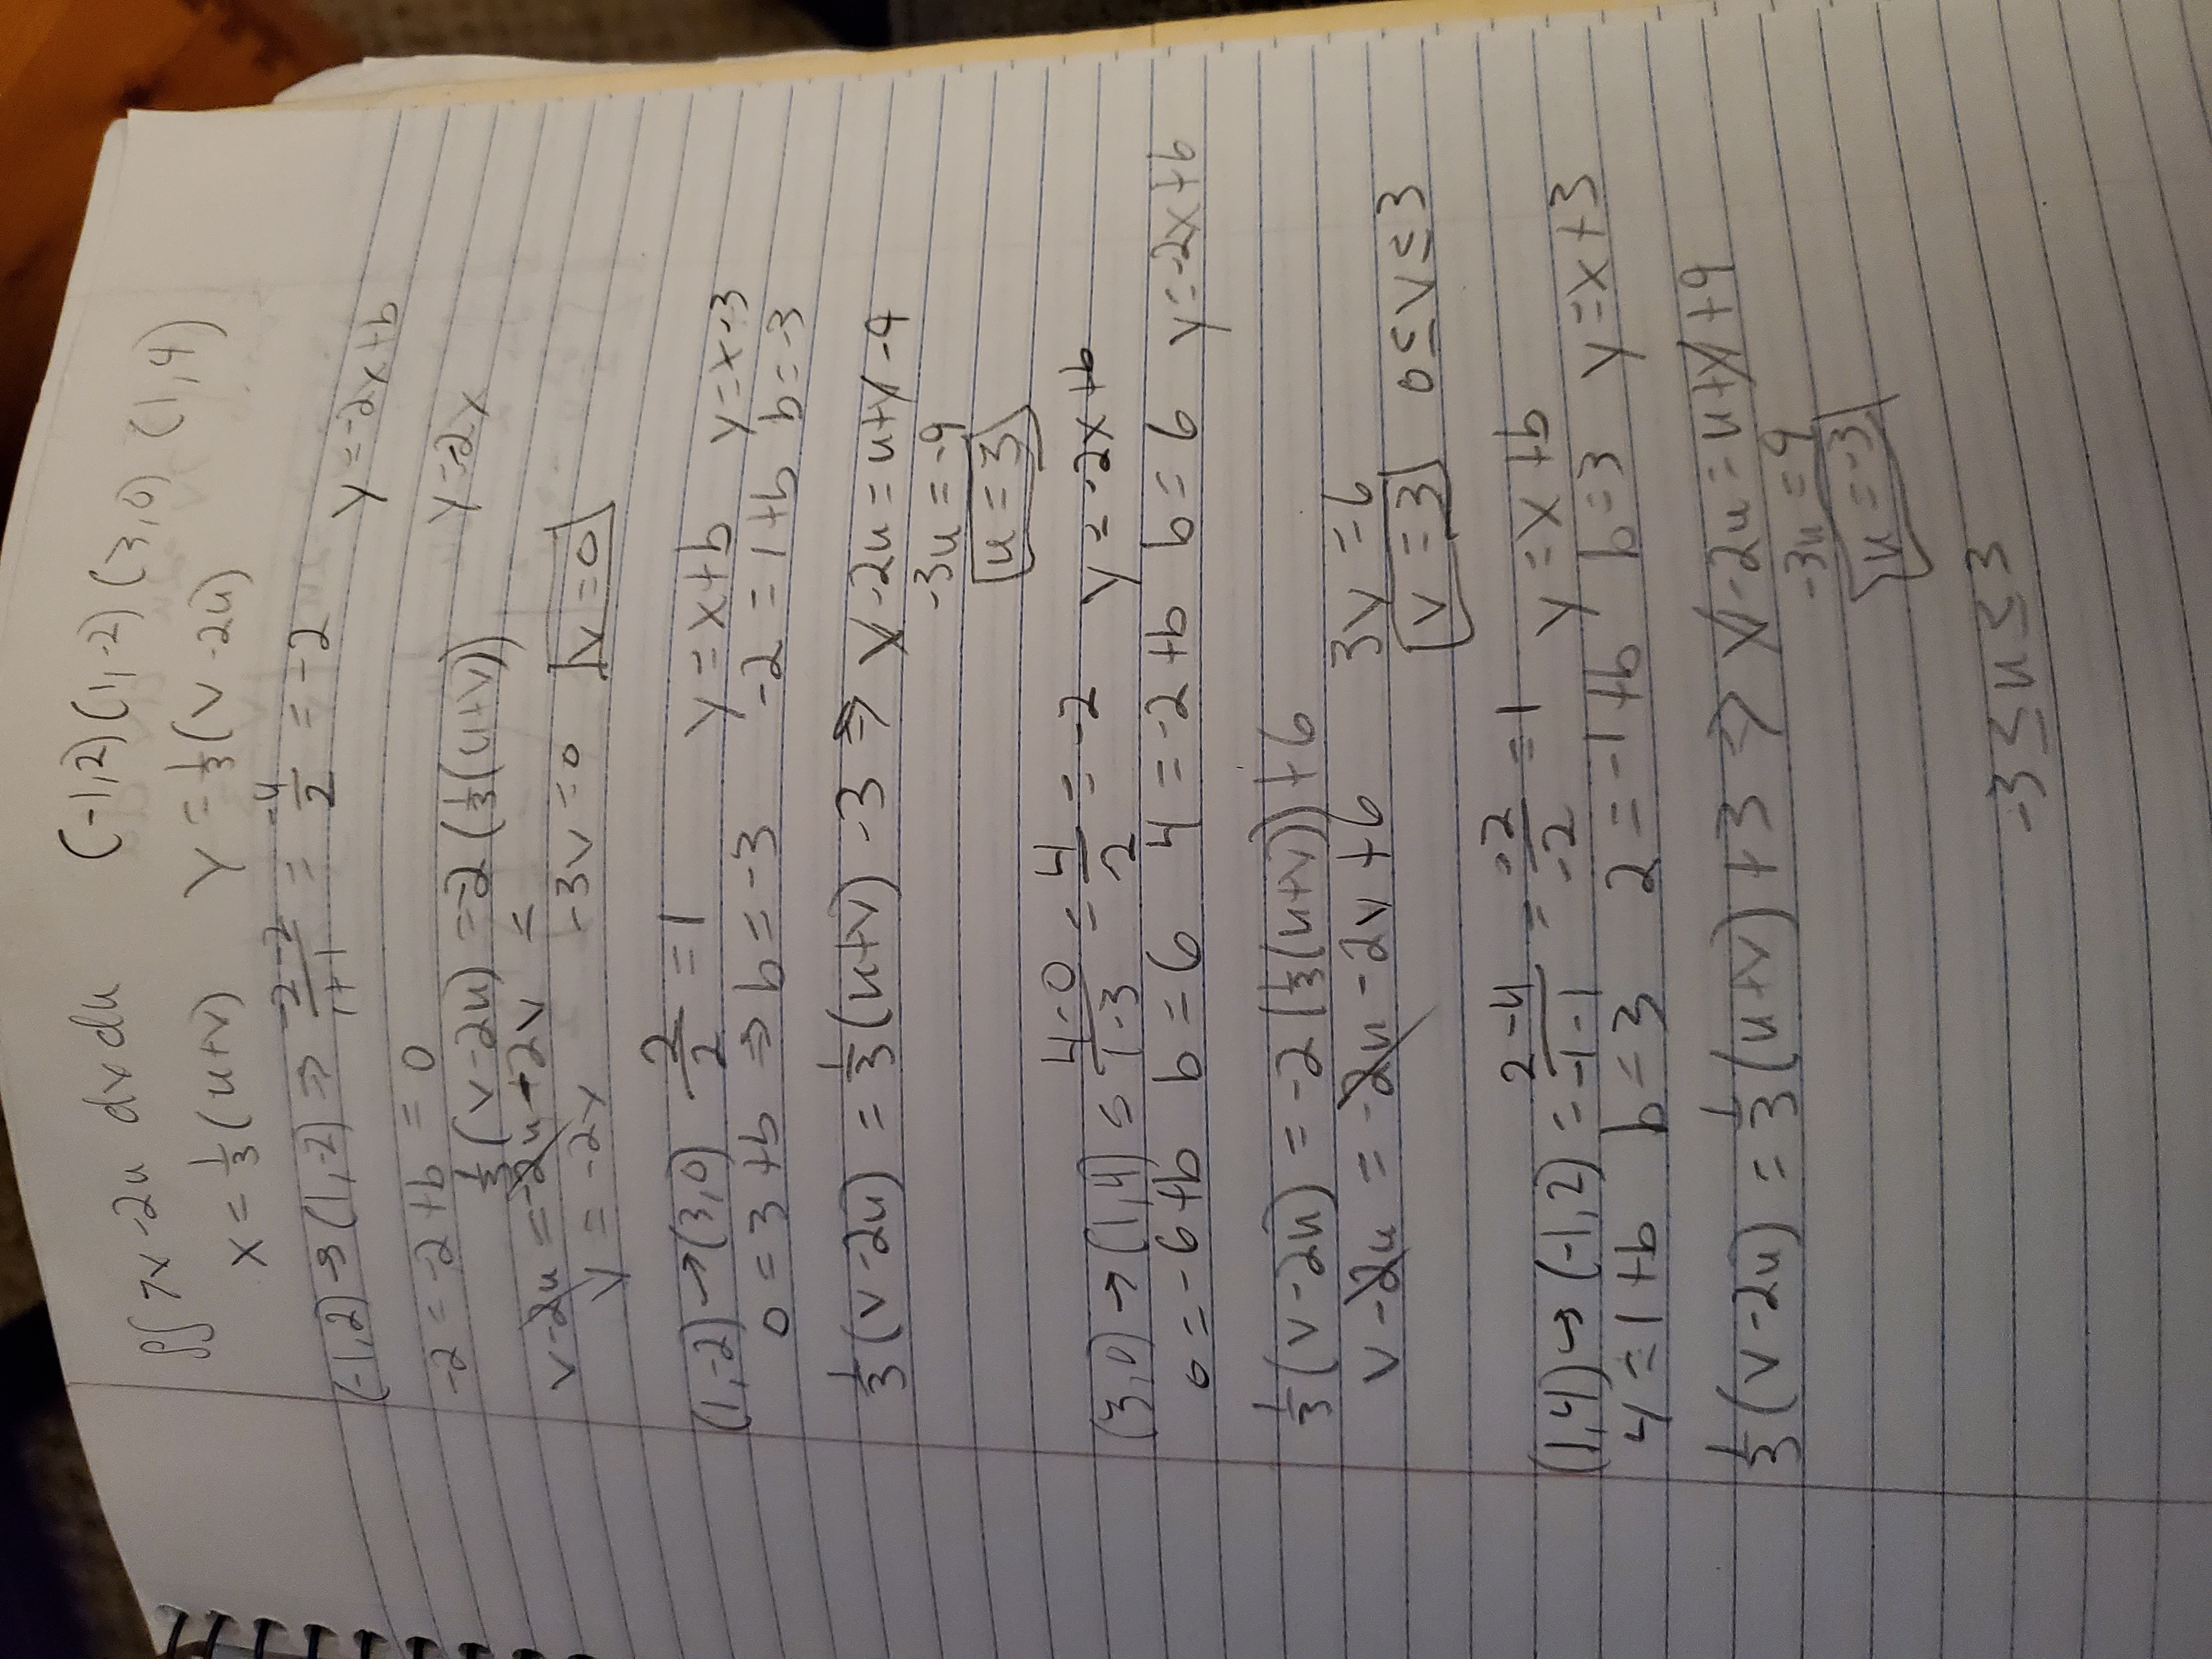 ∫∫ 7v - 2u dv du (-1,2) (1,-2) (3,0) (1,4)
x = 1/3 (u+v) y = 1/3 (v - 2u)
(-1,2) → (1,-2) ⇒ (-2-2)/(1+1) = -4/2 = -2 y = -2x+b
-2 = -2+b = 0 y=-2x
1/3 (v-2u) = -2 (1/3 (u+v))
v-2u = -2u-2v =
v = -2v -3v=0 v=0
(1,-2) → (3,0) 2/2 = 1 y = x+b y=x-3
0 = 3+b ⇒ b = -3 -2 = 1+b b=-3
1/3 (v-2u) = 1/3 (u+v) - 3 ⇒ v-2u = u+v-9
-3u = -9
u = 3
(3,0) → (1,4) = (4-0)/(1-3) = 4/-2 = -2 y = -2x+b
0 = -6+b b = 6 4 = -2+b b = 6 y=-2x+6
1/3 (v-2u) = -2 (1/3 (u+v)) + 6
v-2u = -2u-2v+6 3v = 6
v = 3 0 ≤ v ≤ 3
(1,4) → (-1,2) = (2-4)/(-1-1) = -2/-2 = 1 y = x+b
4 = 1+b b = 3 2 = -1+b b=3 y=x+3
1/3 (v-2u) = 1/3 (u+v) + 3 ⇒ v-2u = u+v+9
-3u = 9
u = -3
-3 ≤ u ≤ 3